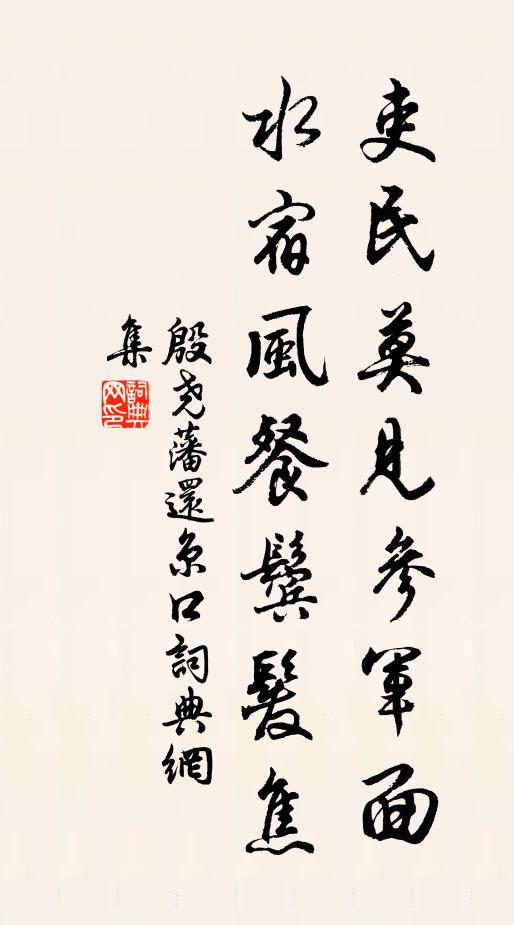 吏民莫見參軍面
水宿風餐鬢髮焦
殷尧藩還京口詞典網
集
詞典網印